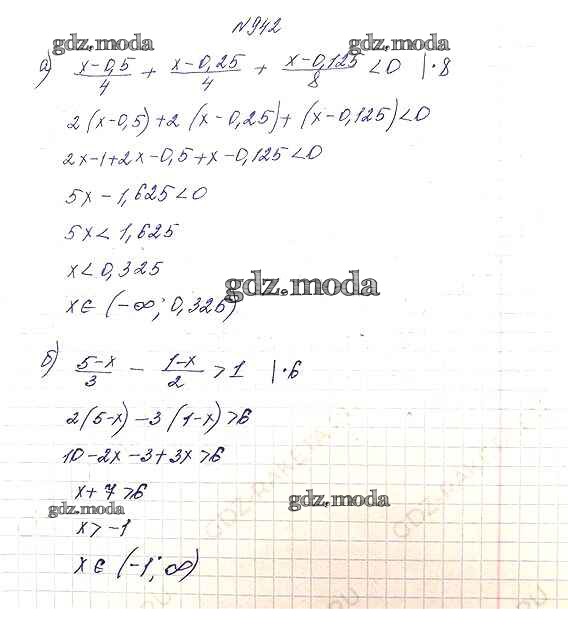 №942
gdz.moda gdz.moda
а) (x-0,5)/4 + (x-0,25)/4 + (x-0,125)/8 <0 |·8
2(x-0,5)+2(x-0,25)+(x-0,125)<0
2x-1+2x-0,5+x-0,125<0
5x-1,625<0
5x<1,625
x<0,325
gdz.moda
x∈(-∞; 0,325)
б) (5-x)/3 - (1-x)/2 >1 |·6
2(5-x)-3(1-x)>6
10-2x-3+3x>6
x+7>6
gdz.moda gdz.moda
x>-1
x∈(-1; ∞)